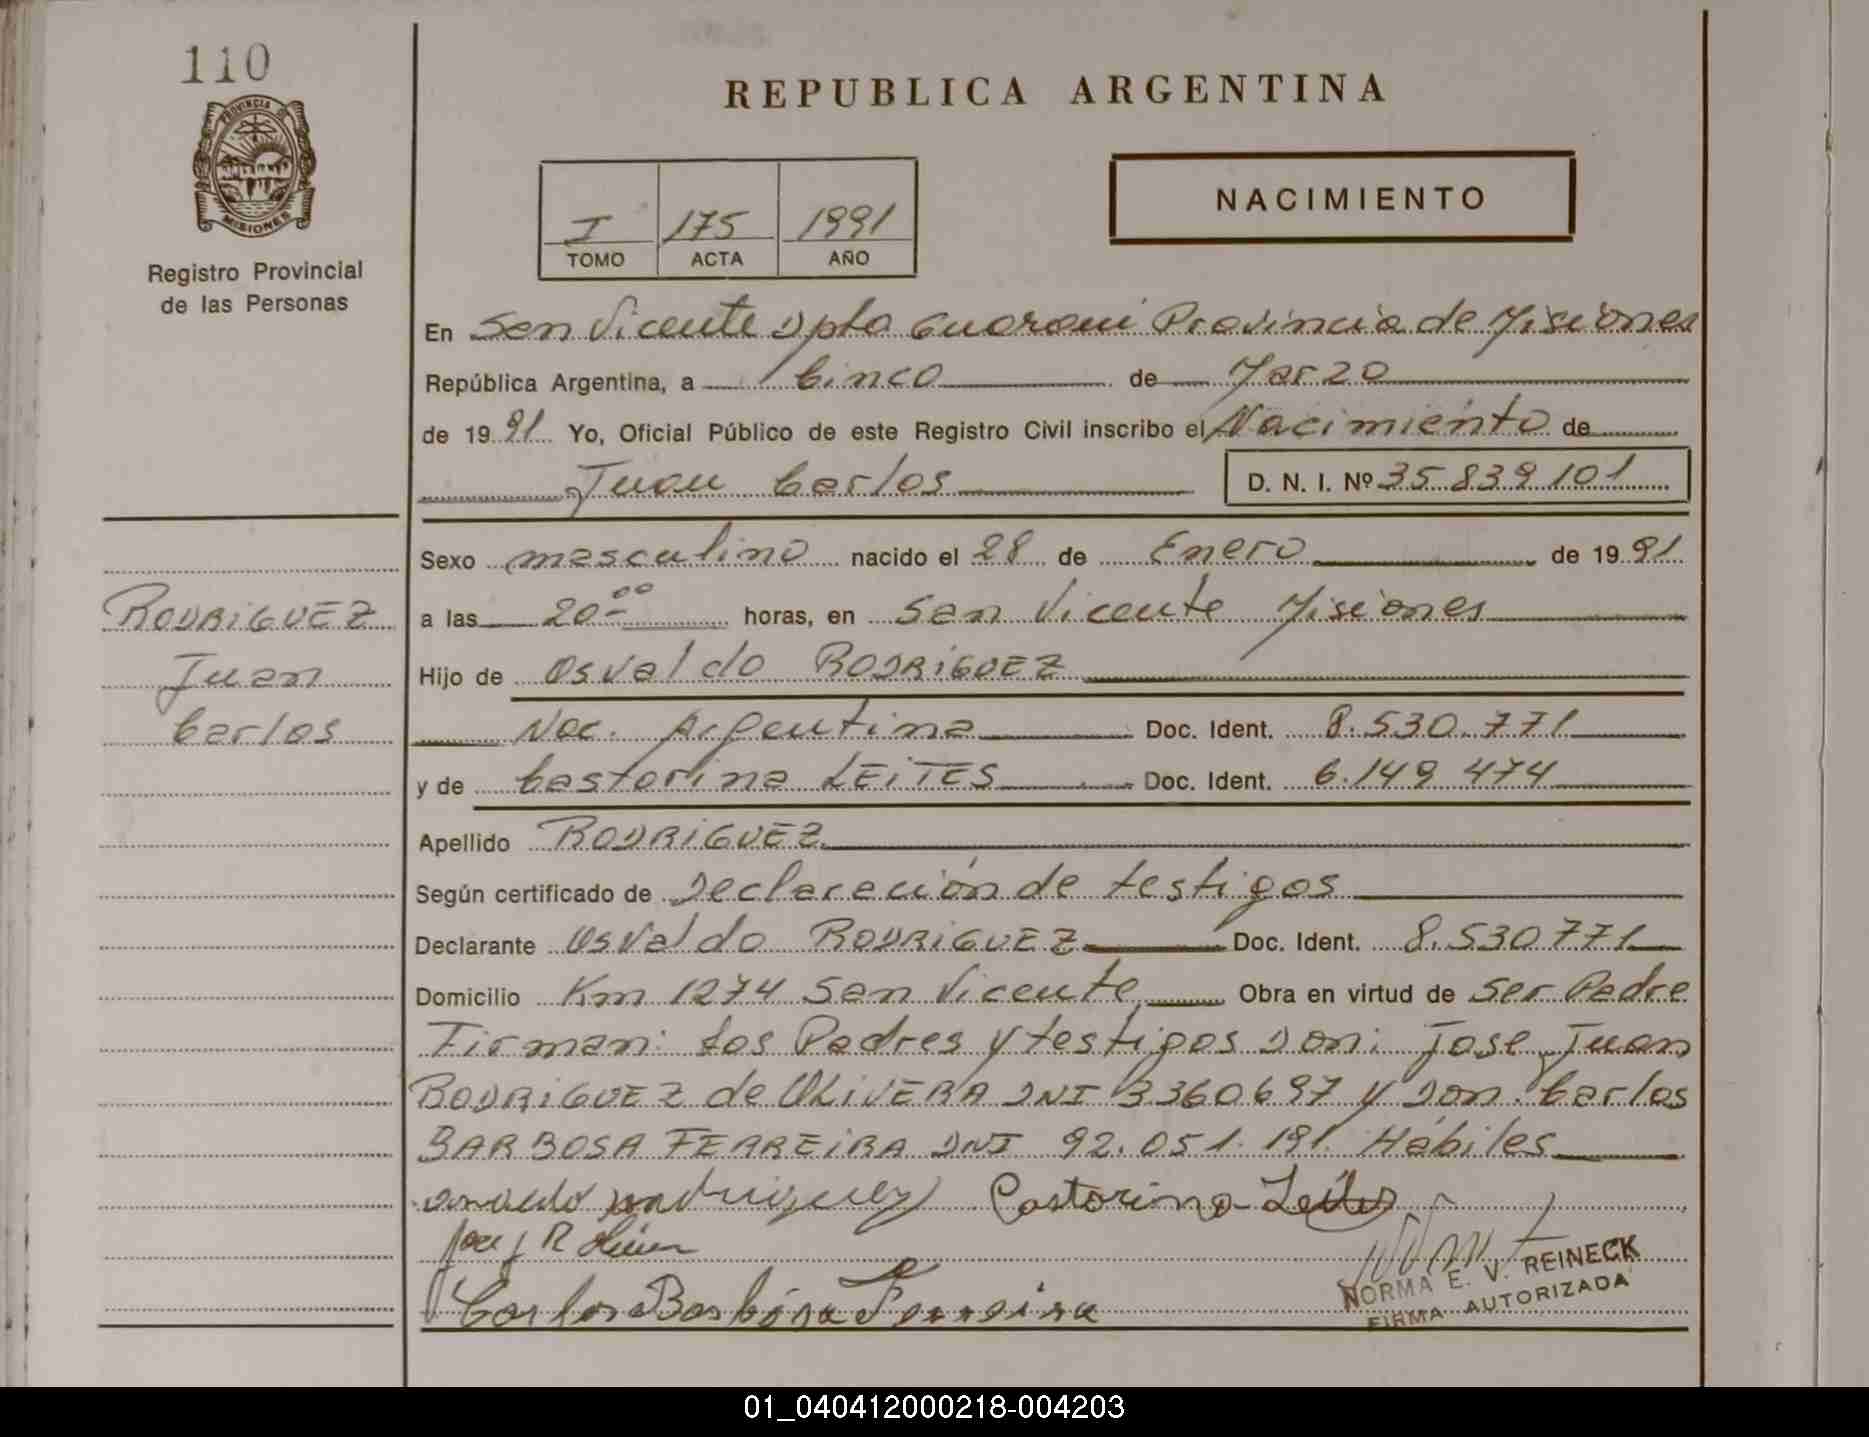 110
PROVINCIA
MISIONES
Registro Provincial
de las Personas
REPUBLICA ARGENTINA
NACIMIENTO
I 175 1991
TOMO ACTA AÑO
En San Vicente Dpto Guarani Provincia de Misiones
República Argentina, a Cinco de Marzo
de 1991 Yo, Oficial Público de este Registro Civil inscribo el Nacimiento de
Juan Carlos D. N. I. Nº 35 839 101
Sexo masculino nacido el 28 de Enero de 1991
RODRiGUEZ
Juan
Carlos
a las 20 00 horas, en San Vicente Misiones
Hijo de Osvaldo RODRiGUEZ
Nac. Argentina Doc. Ident. 8.530.771
y de Castorina LEiTES Doc. Ident. 6.149 474
Apellido RODRiGUEZ
Según certificado de Declaración de testigos
Declarante Osvaldo RODRiGUEZ Doc. Ident. 8.530771
Domicilio Km 1274 San Vicente Obra en virtud de Ser Padre
Firman: Los Padres y testigos Don: Jose Juan
RODRiGUEZ de OLiVERA DNI 3360697 y Don. Carlos
BARBOSA FERREiRA DNI 92.051.191. Hábiles
Castorina Leites
Carlos Barbosa Ferreira
NORMA E. V. REINECK
FIRMA AUTORIZADA
01_040412000218-004203